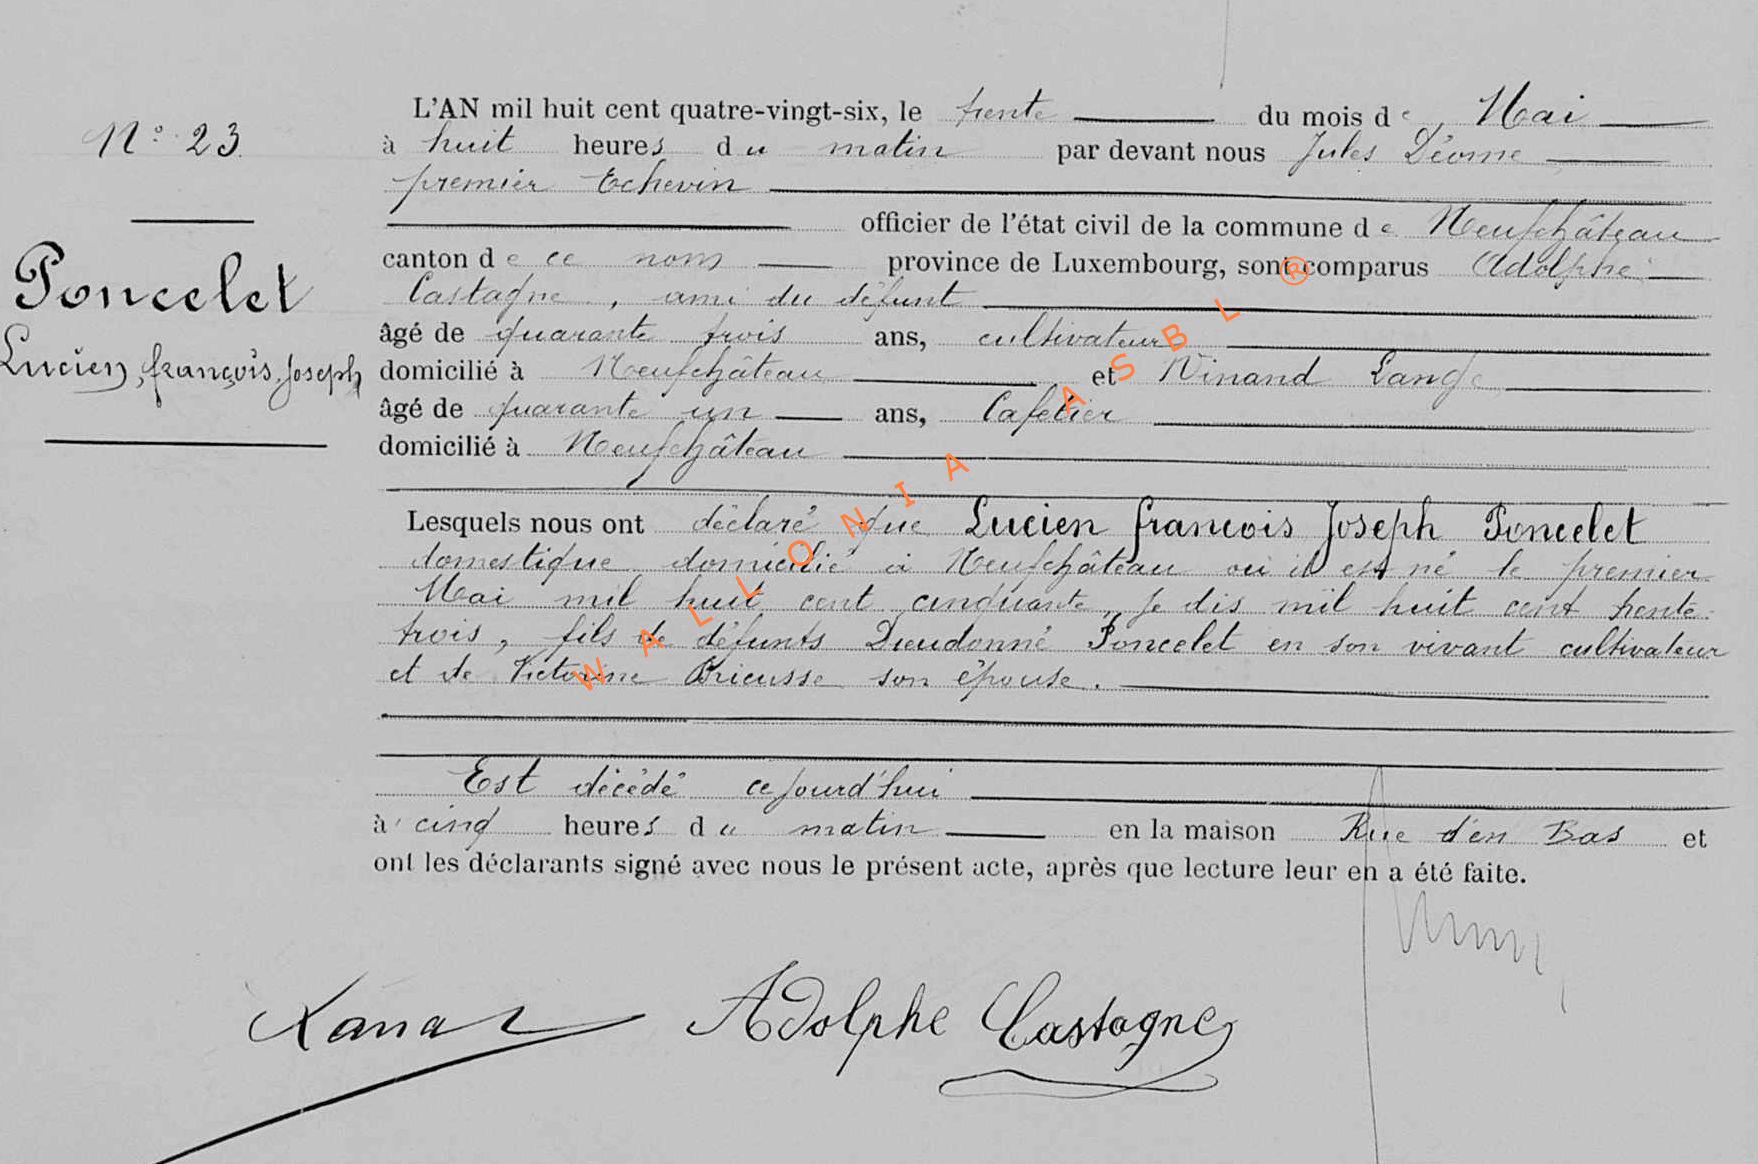 N° 23
Poncelet
Lucien, françois, Joseph
L'AN mil huit cent quatre-vingt-six, le trente du mois de Mai
à huit heures du matin par devant nous Jules Déome
premier Echevin
officier de l'état civil de la commune de Neufchâteau
canton de ce nom province de Luxembourg, sont comparus Adolphe
Castagne, ami du défunt
âgé de quarante trois ans, cultivateur
domicilié à Neufchâteau et Ninand Lange
âgé de quarante un ans, Cafetier
domicilié à Neufchâteau
Lesquels nous ont déclaré que Lucien françois Joseph Poncelet
domestique domicilié à Neufchâteau où il est né le premier
Mai mil huit cent cinquante, je dis mil huit cent trente
trois, fils de défunts Dieudonné Poncelet en son vivant cultivateur
et de Victorine Bricusse son épouse.
Est décédé cejourd'hui
à cinq heures du matin en la maison Rue d'en Bas et
ont les déclarants signé avec nous le présent acte, après que lecture leur en a été faite.
Adolphe Castagne
WALLONIA ASBL ®